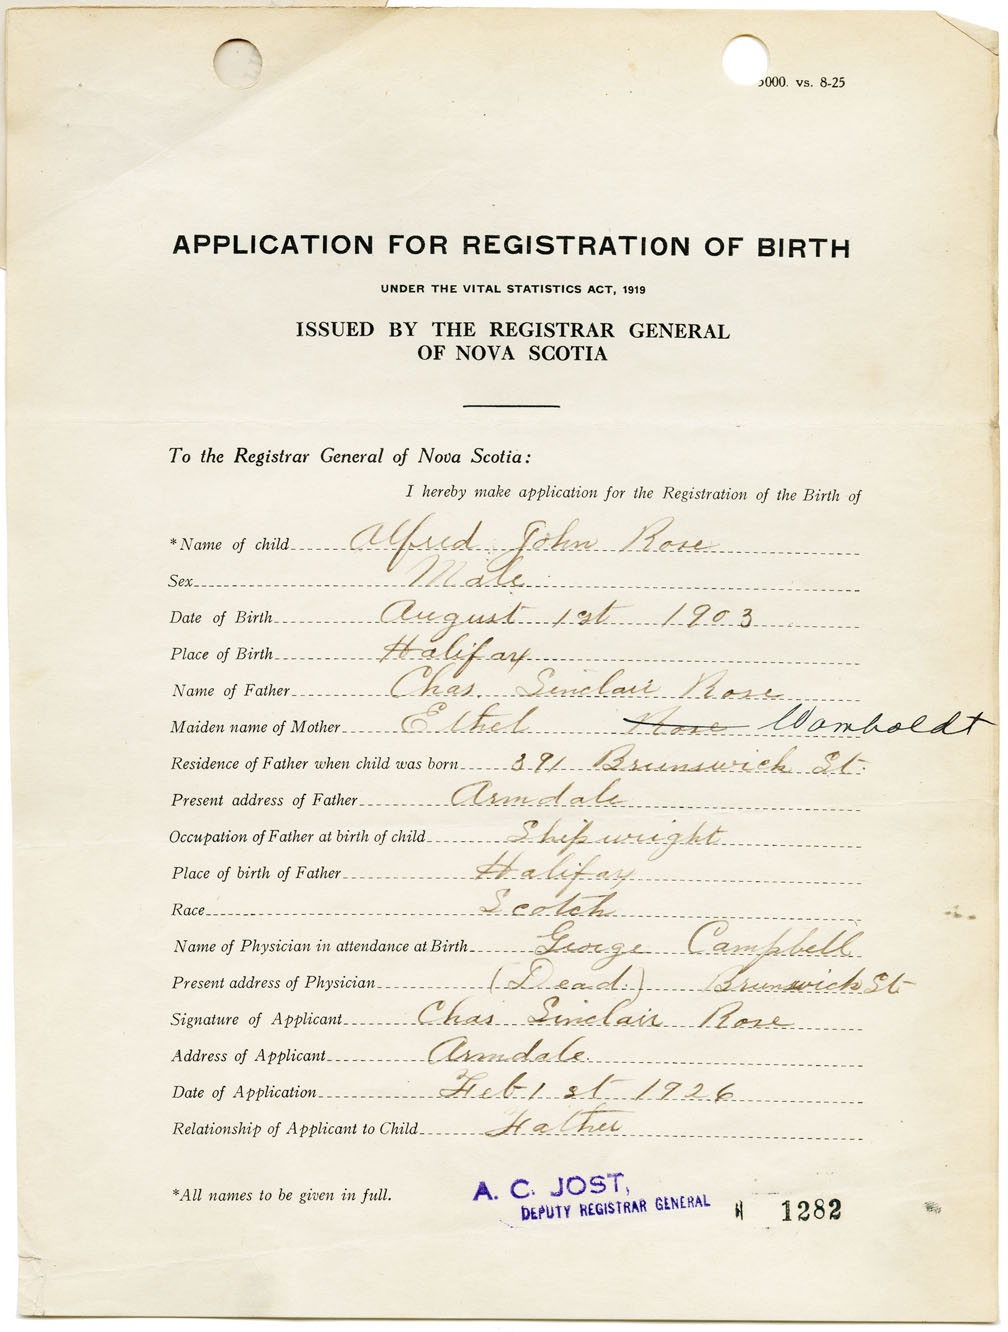 5000. vs. 8-25
APPLICATION FOR REGISTRATION OF BIRTH
UNDER THE VITAL STATISTICS ACT, 1919
ISSUED BY THE REGISTRAR GENERAL
OF NOVA SCOTIA
To the Registrar General of Nova Scotia:
I hereby make application for the Registration of the Birth of
*Name of child Alfred John Rose
Sex Male
Date of Birth August 1st 1903
Place of Birth Halifax
Name of Father Chas. Sinclair Rose
Maiden name of Mother Ethel Rose Womboldt
Residence of Father when child was born 391 Brunswick St.
Present address of Father Armdale
Occupation of Father at birth of child Shipwright
Place of birth of Father Halifax
Race Scotch
Name of Physician in attendance at Birth George Campbell
Present address of Physician (Dead.) Brunswick St
Signature of Applicant Chas Sinclair Rose
Address of Applicant Armdale.
Date of Application Feb 1st 1926
Relationship of Applicant to Child Father
*All names to be given in full.
A. C. JOST,
DEPUTY REGISTRAR GENERAL
1282